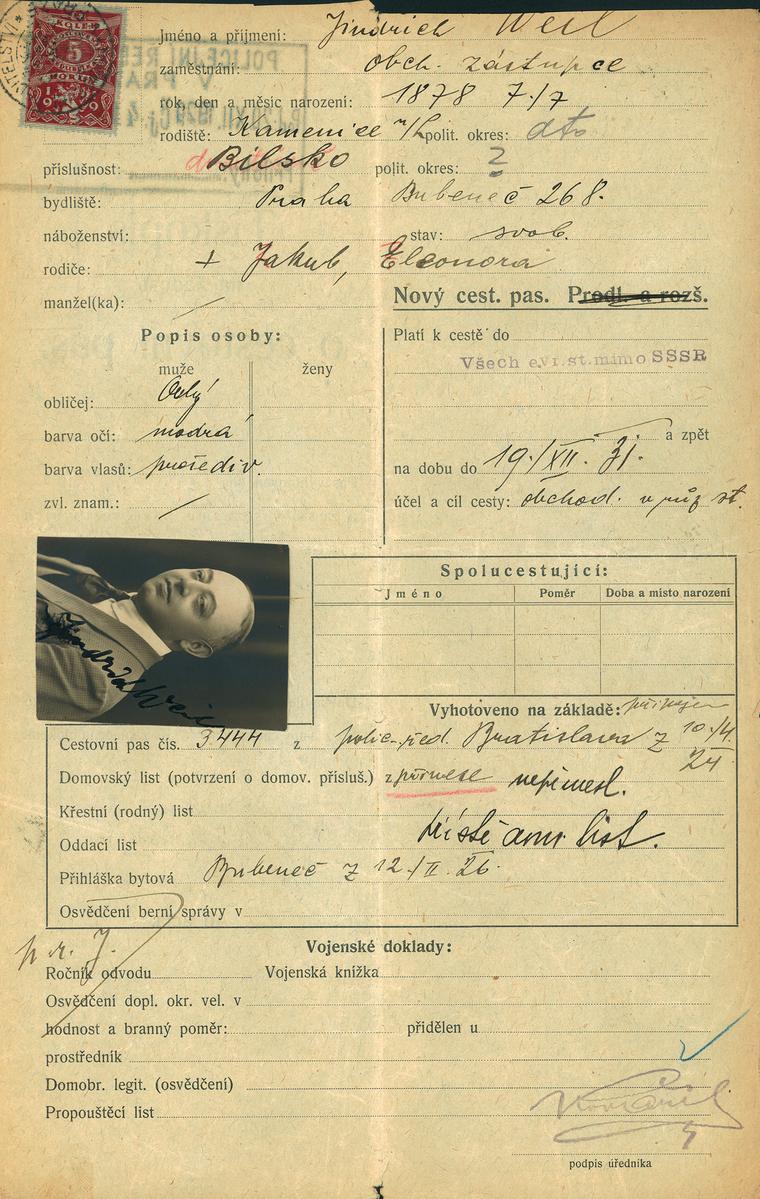 Jméno a příjmení: Jindřich Weil
zaměstnání: obch. zástupce
rok, den a měsíc narození: 1878 7./7
rodiště: Kamenice n/L polit. okres: dto
příslušnost: Bilsko polit. okres: ?
bydliště: Praha Bubeneč 268.
náboženství: stav: svob.
rodiče: + Jakub, Eleonora
manžel(ka): /
Nový cest. pas. Prodl. a rozš.
Popis osoby:
muže ženy
obličej: Oválný
barva očí: modrá
barva vlasů: prošediv.
zvl. znam.: /
Platí k cestě do
Všech evr. st. mimo SSSR
a zpět
na dobu do 19./XII. 31.
účel a cíl cesty: obchod. v růz st.
Jindřich Weil
Spolucestující:
Jméno Poměr Doba a místo narození
Vyhotoveno na základě:
Cestovní pas čís. 3444 z polic. řed. Bratislava z 10./4. 24
Domovský list (potvrzení o domov. přísluš.) z přinese nepřinesl.
Křestní (rodný) list
Oddací list list.
Přihláška bytová Bubeneč z 12./II. 26.
Osvědčení berní správy v
Vojenské doklady:
Ročník odvodu Vojenská knížka
Osvědčení dopl. okr. vel. v
hodnost a branný poměr: přidělen u
prostředník
Domobr. legit. (osvědčení)
Propouštěcí list
podpis úředníka